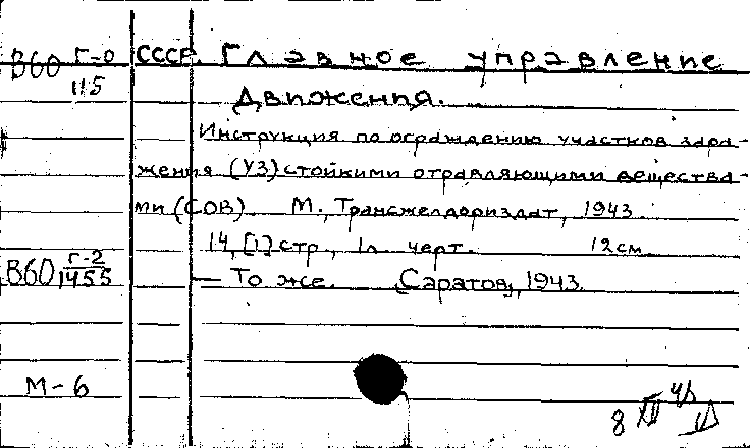 В60 Г-0 СССР. Главное управление
115 Движения.
Инструкция по ограждению участков зара-
жения (УЗ) стойкими отравляющими вещества-
ми (СОВ). М., Трансжелдориздат, 1943.
14, [1] стр., 1 л. черт. 12 см.
В60 Г-2/1455 — То же. [Саратов], 1943.
М-6
8 XII 43